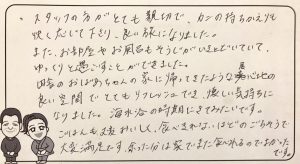 ・スタッフの方がとても親切で、カニの持ちかえりも
快くだして下さり、良い旅になりました。
また、お部屋やお風呂もそうじがいきとどいていて、
ゆっくりと過ごすことができました。
田舎のおばあちゃんの家に帰ってきたような居心地の
良い空間でとてもリフレッシュでき、優しい気持ちに
なりました。海水浴の時期にきてみたいです。
ごはんも大変おいしく、食べきれないほどのごちそうで
大変満足です。余った分は家でまた食べれるのでよかった
です。